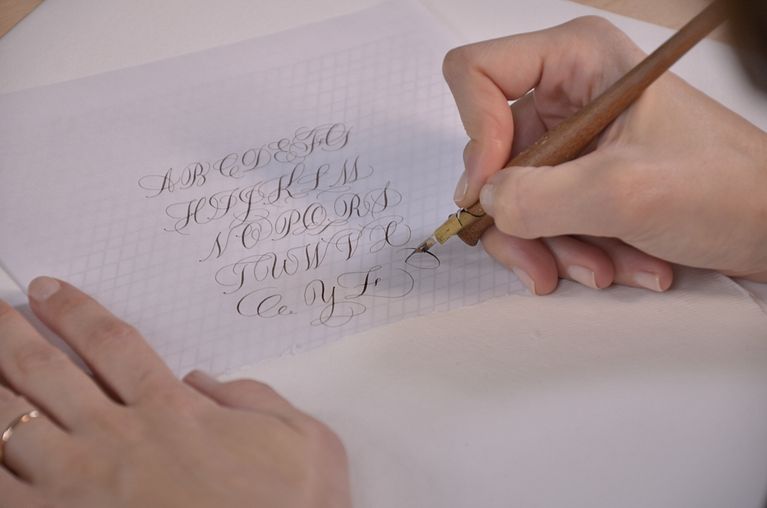 A B C D E F G
H I J K L M
N O P Q R S
T U W V X
Ce Y F